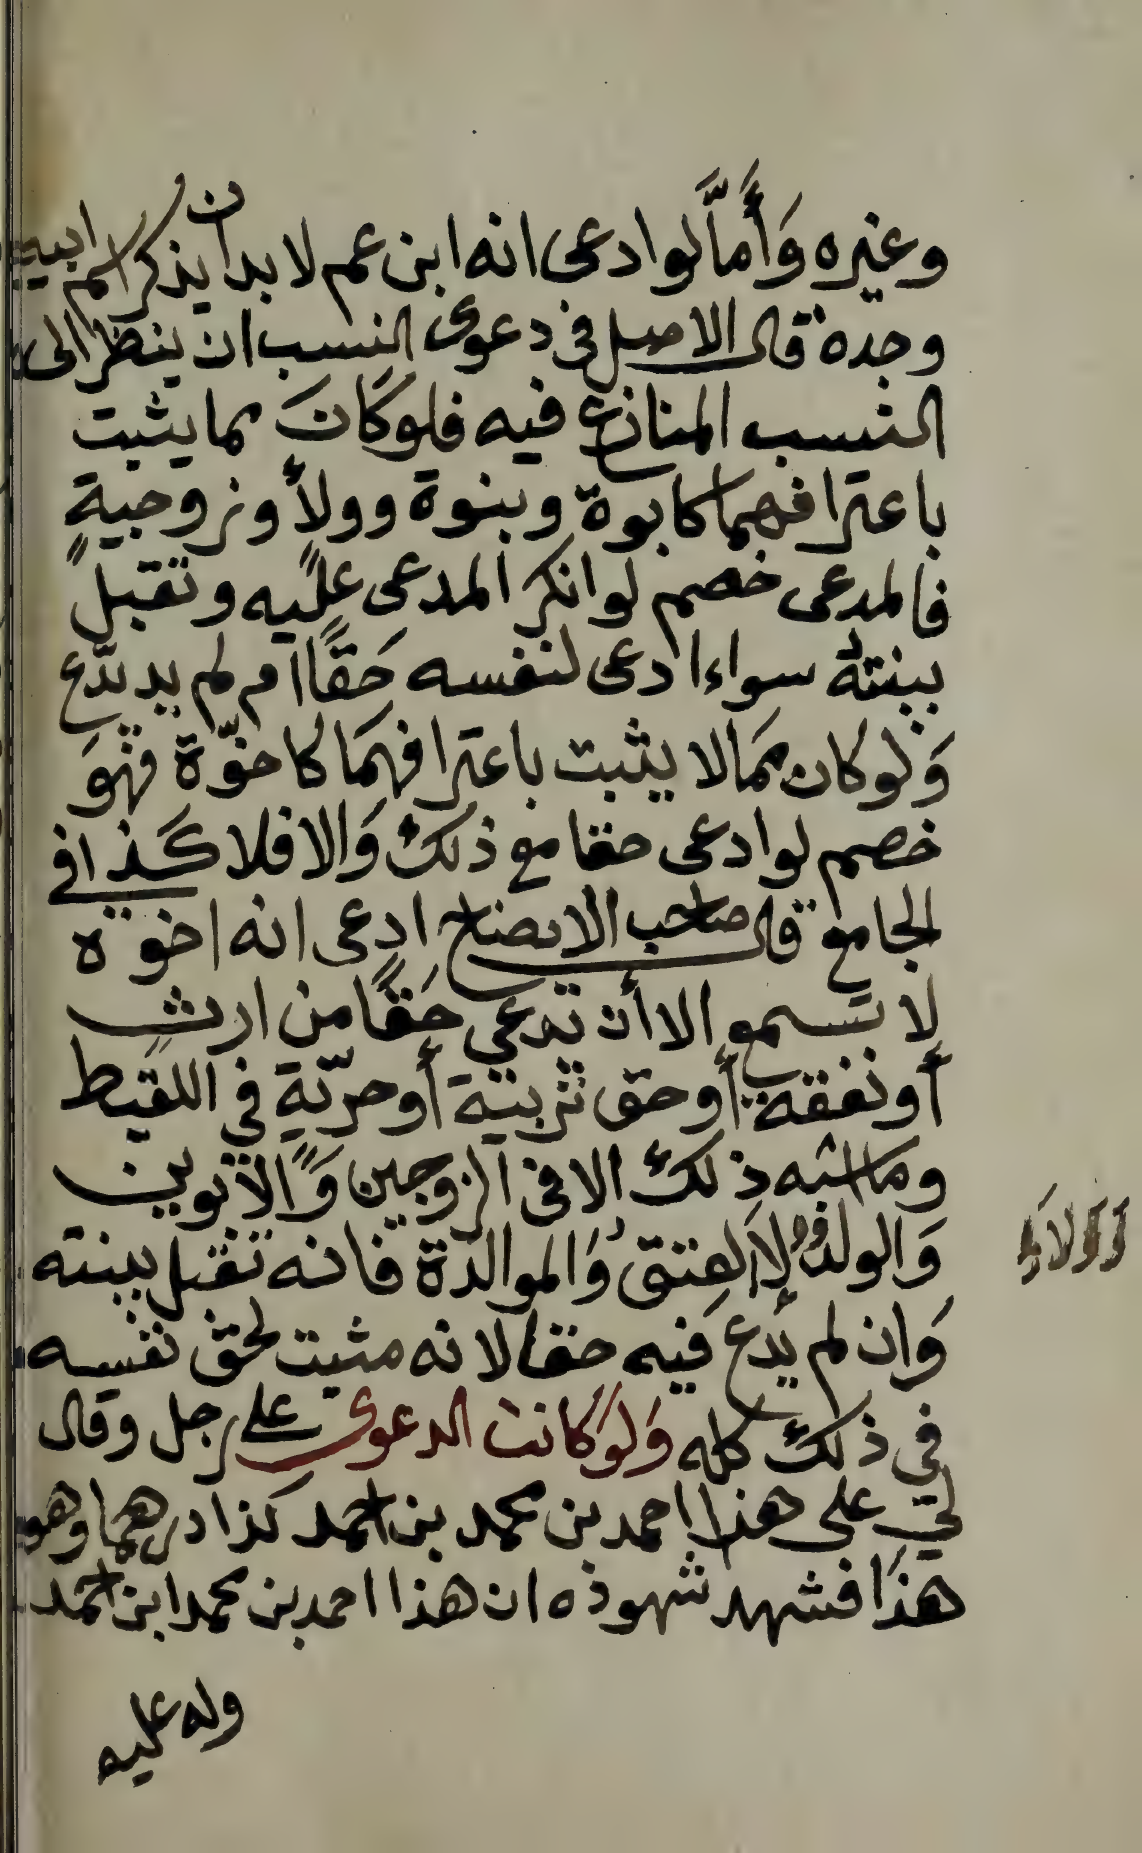 وغيره وَأَمَّا لو ادعى انه ابن عم لا بد ان يذكر اسم ابيه
وجده قال الاصل في دعوى النسب ان ينظر الى
النسب المنازع فيه فلو كَانَ مما يثبت
باعترافهما كابوة وبنوة وولأ وزوجيةٍ
فالمدعى خصم لو انكر المدعى عليه وتقبل
بينتهُ سواء ادعى لنفسه حَقًا ام لم يد يدّع
وَلو كان ممالا يثبت باعترافهمَا كاخوّة فهوَ
خصم لو ادعى حقا مع ذلك وَالا فلا كذا في
الجامع قال صاحب الايضاح ادعى انه اخوة
لا تسمع الا أن تدعي حَقًا من ارثٍ
أو نفقة أو حق تربية أو حرّيّةٍ في اللقيط
وما اشبه ذلك الا فى الزوجين وَالأبوين
وَالولد ولا العتق وَالموالدّة فانه تقبل بينته
وَان لم يُدع فيه حقا لانه مثبت لحق نفسه
في ذلك كله وَلو كانت الدعوى على رجل وقال
لي على هذا احمد بن محمد بن احمد كذا درهما وهو
هذا فشهد شهوذه ان هذا احمد بن محمد ابن احمد
وله عليه
وَوَلاءِ